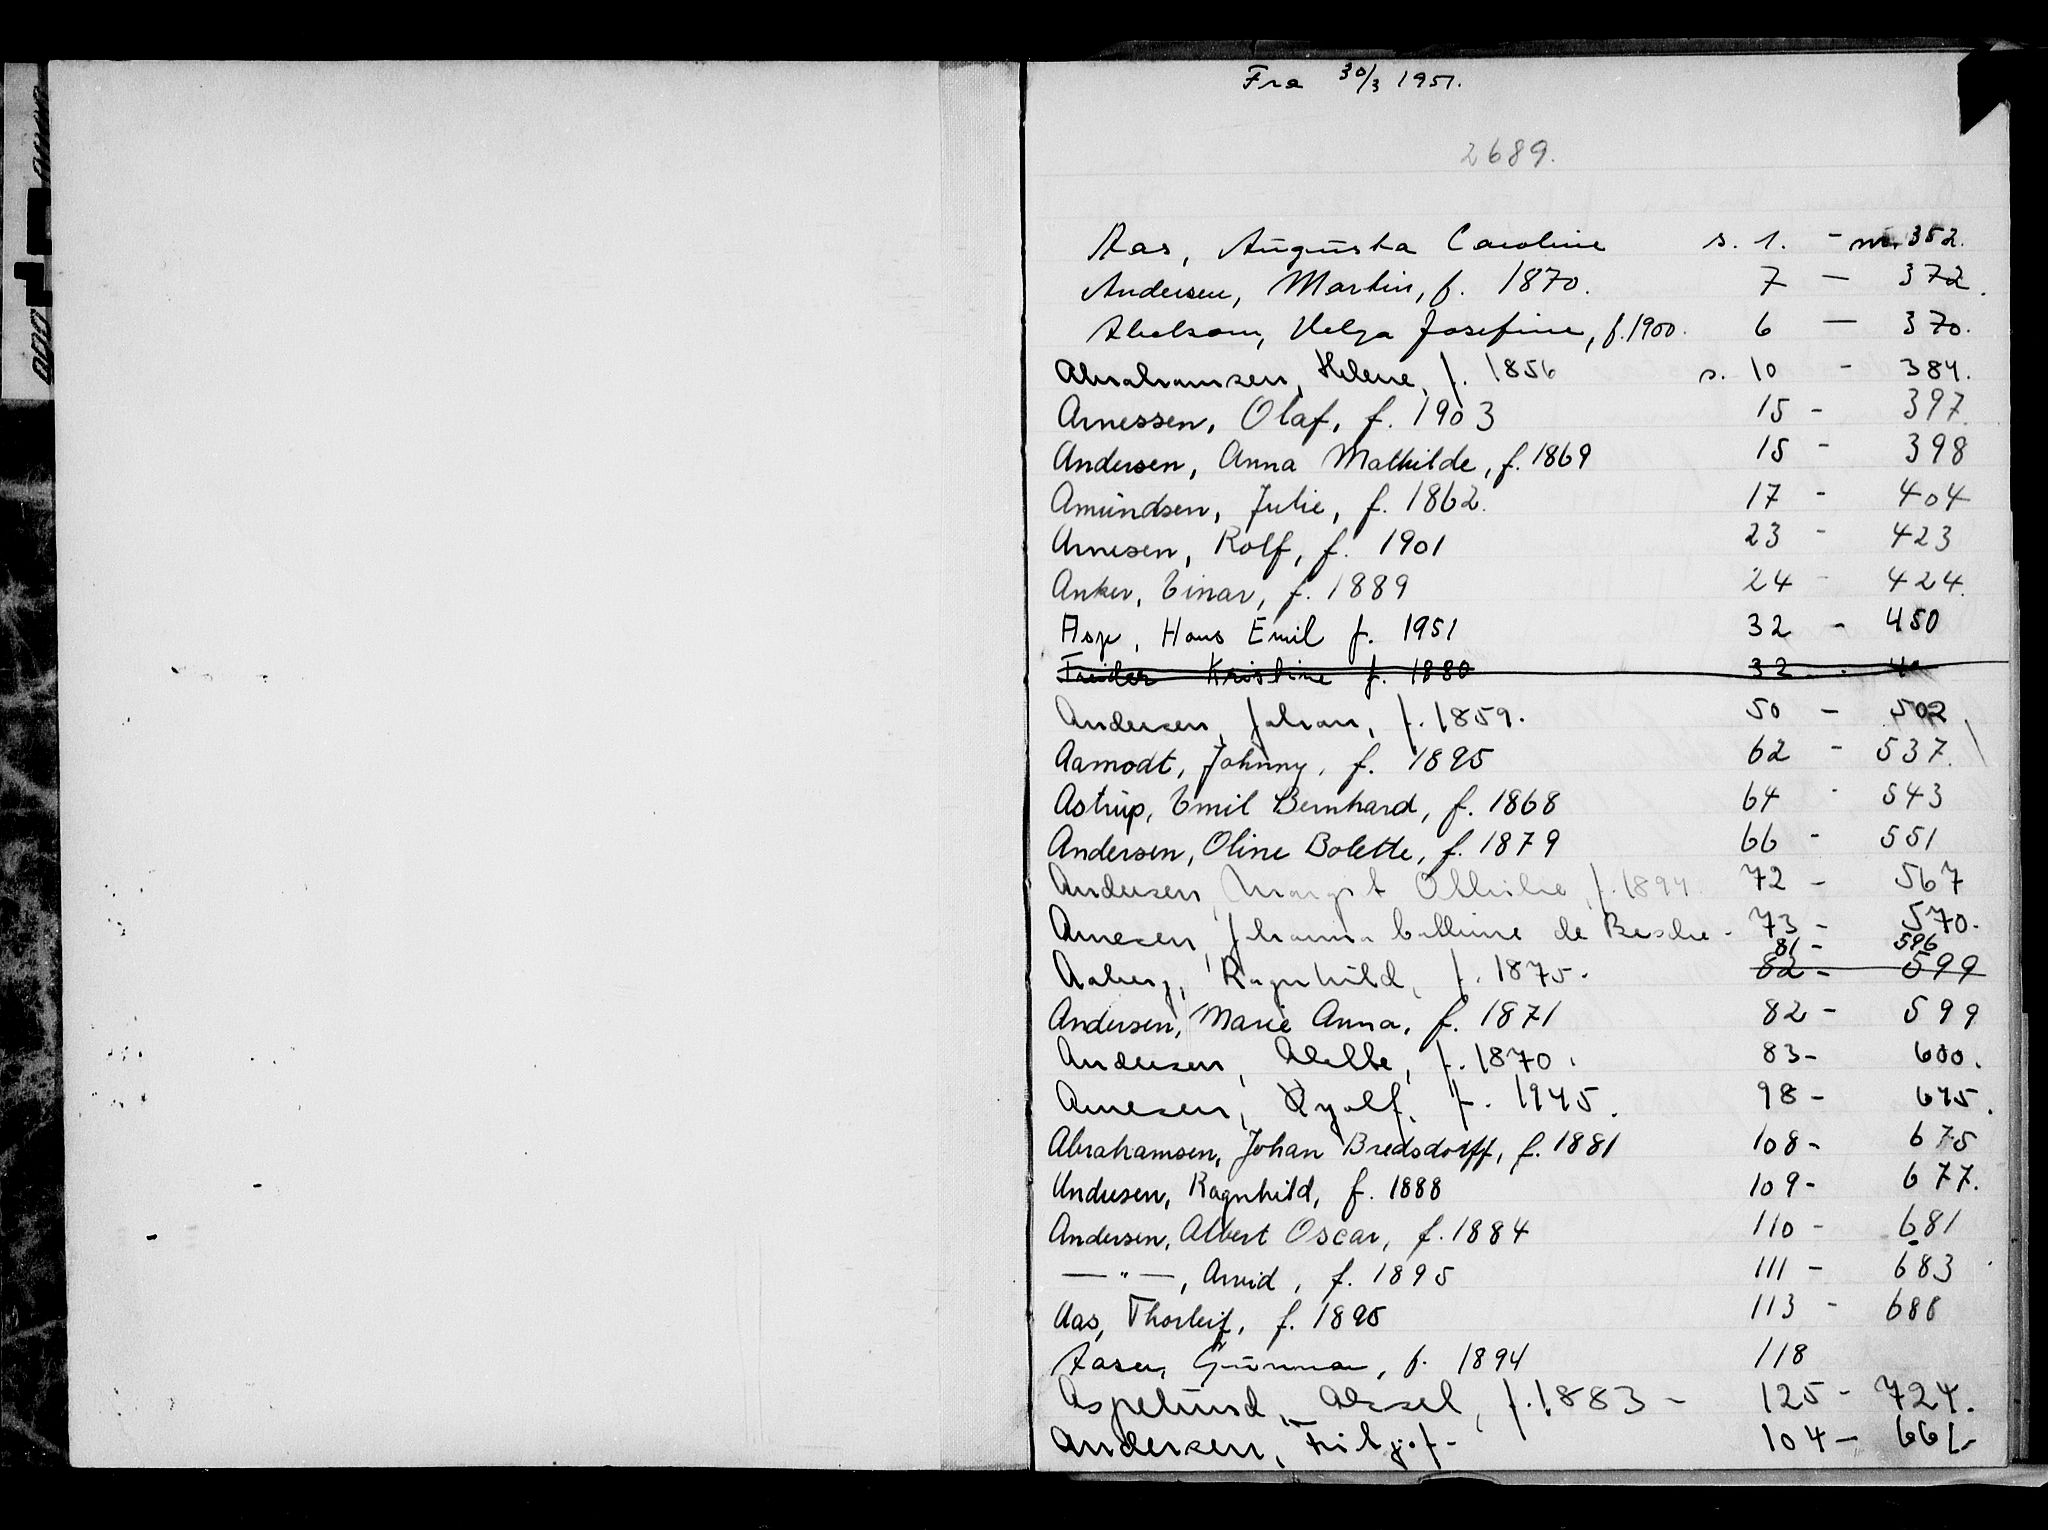 Fra 30/3 1951.
2689.
Aas, Augusta Caroline s. 1. - nr. 352.
Andersen, Martin, f. 1870. 7 - 372.
Abelsen, Helga Josefine, f. 1900. 6 - 370.
Abrahamsen, Helene, f. 1856 s. 10 - 384.
Arnessen, Olaf, f. 1903 15 - 397
Andersen, Anna Mathilde, f. 1869 15 - 398
Amundsen, Julie, f. 1862. 17 - 404
Arnesen, Rolf, f. 1901 23 - 423
Anker, Einar, f. 1889 24 - 424.
Asp, Hans Emil f. 1951 32 - 450
Kristine f. 1880 32 -
Andersen, Johan, f. 1859. 50 - 502
Aamodt, Johnny, f. 1895 62 - 537.
Astrup, Emil Bernhard, f. 1868 64 - 543
Andersen, Oline Bolette, f. 1879 66 - 551
Andersen, Margit Othilie, f. 1894. 72 - 567
Arnesen, Johanna de 73 - 570.
81 - 596
Aaberg, Ragnhild, f. 1875. 82 - 599
Andersen, Marie Anna, f. 1871 82 - 599
Andersen, f. 1870. 83 - 600.
Arnesen, f. 1945. 98 - 645.
Abrahamsen, Johan Bredsdorff, f. 1881 108 - 675
Andersen, Ragnhild, f. 1888 109 - 677.
Andersen, Albert Oscar, f. 1884 110 - 681
— " —, Arvid, f. 1895 111 - 683
Aas, Thorleif, f. 1895 113 - 688
Aasen, Gunnar, f. 1894 118
Aspelund, Aksel, f. 1883 - 125 - 724.
Andersen, Fritjof - 104 -